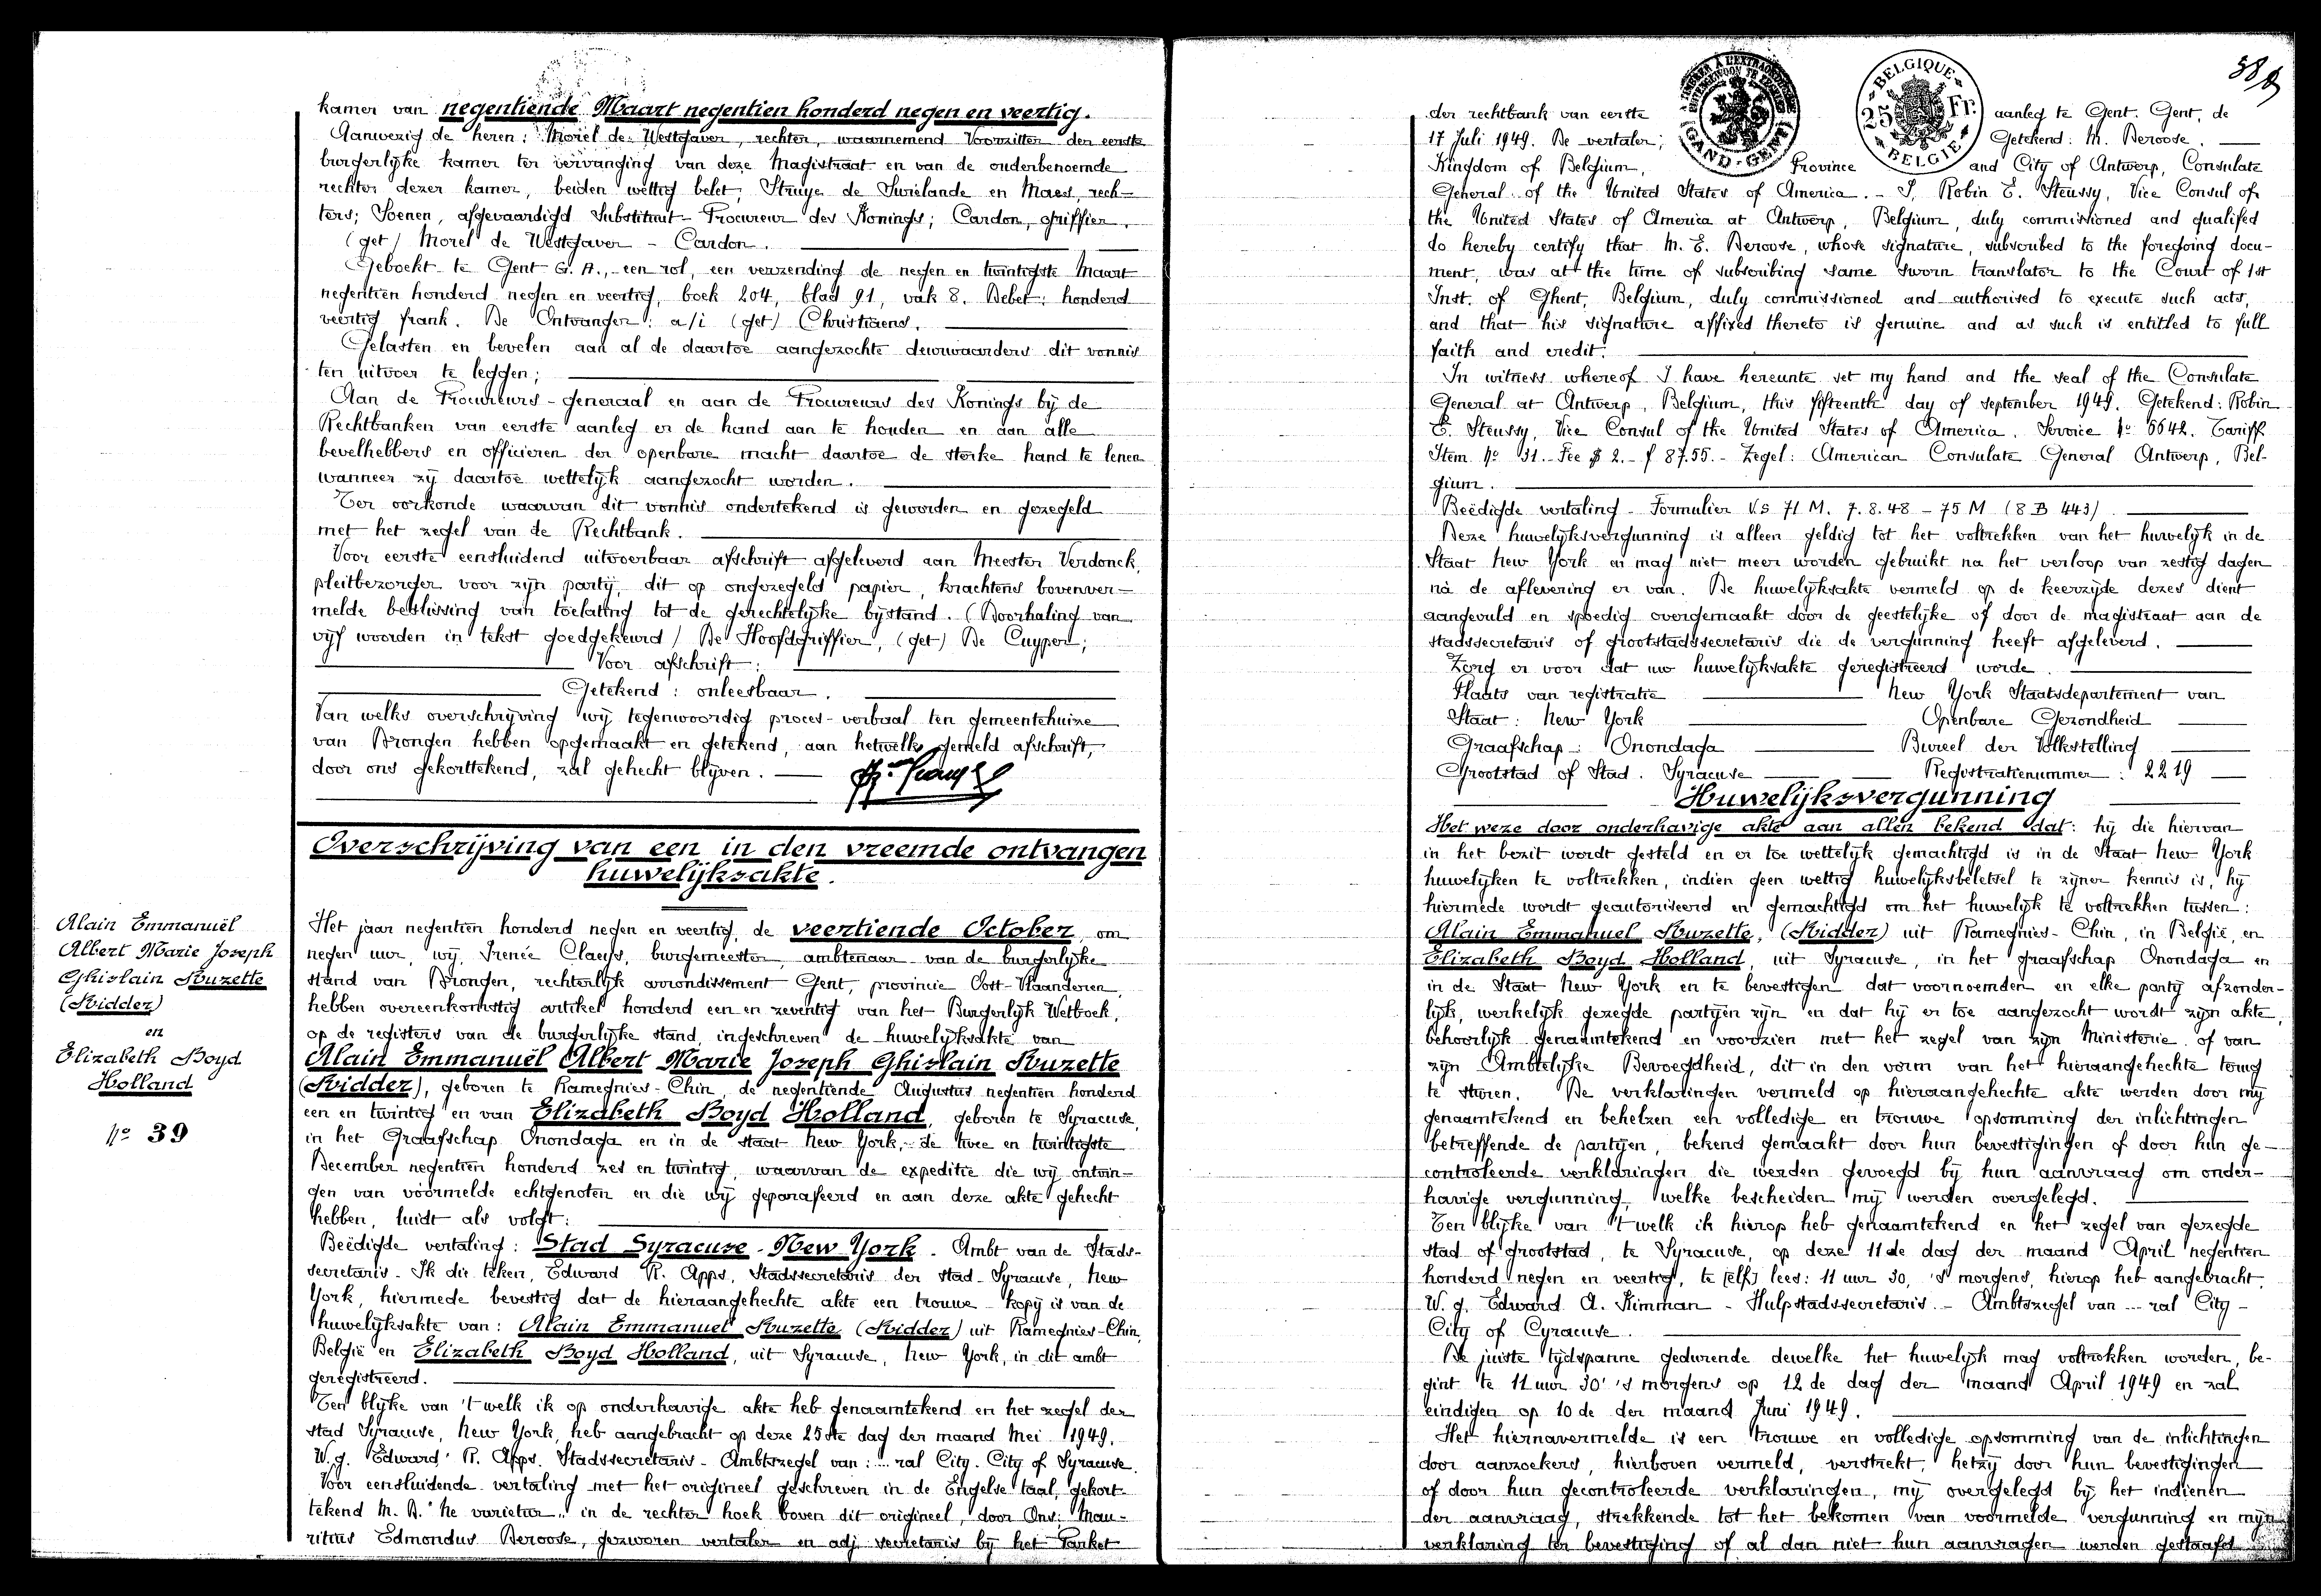 kamer van negentiende Maart negentien honderd negen en veertig.
Aanwezig de heren: Morel de Westgaver, rechter, waarnemend Voorzitter der eerste
burgerlijke kamer ter vervanging van deze Magistraat en van de ouderbenoemde
rechter dezer kamer, beiden wettig belet, Struye de Swielande en Maes, rech-
ters; Soenen, afgevaardigd Substituut-Procureur des Konings; Cardon, griffier.
(get) Morel de Westgaver - Cardon.
Geboekt te Gent G. A., een rol, een verzending de negen en twintigste Maart
negentien honderd negen en veertig, boek 204, blad 91, vak 8. Debet: honderd
veertig frank. De Ontvanger: a/i (get) Christiaens.
Gelasten en bevelen aan al de daartoe aangezochte deurwaarders dit vonnis
ten uitvoer te leggen;
Aan de Procureurs-generaal en aan de Procureurs des Konings bij de
Rechtbanken van eerste aanleg er de hand aan te houden en aan alle
bevelhebbers en officieren der openbare macht daartoe de sterke hand te lenen
wanneer zij daartoe wettelijk aangezocht worden.
Ter oorkonde waarvan dit vonnis ondertekend is geworden en gezegeld
met het zegel van de Rechtbank.
Voor eerste eensluidend uitvoerbaar afschrift afgeleverd aan Meester Verdonck,
pleitbezorger voor zijn partij, dit op ongezegeld papier, krachtens bovenver-
melde beslissing van toelating tot de gerechtelijke bijstand. (Doorhaling van
vijf woorden in tekst goedgekeurd) De Hoofdgriffier, (get) De Cuyper;
Voor afschrift:
Getekend: onleesbaar.
Van welks overschrijving wij tegenwoordig proces-verbaal ten gemeentehuize
van Drongen hebben opgemaakt en getekend, aan hetwelk gemeld afschrift,
door ons gekorttekend, zal gehecht blijven.
Overschrijving van een in den vreemde ontvangen
huwelijksakte.
Alain Emmanuël
Albert Marie Joseph
Ghislain Kuzette
(Ridder)
en
Elizabeth Boyd
Holland
No 39
Het jaar negentien honderd negen en veertig, de veertiende October, om
negen uur, wij, Irenée Claeys, burgemeester, ambtenaar van de burgerlijke
stand van Drongen, rechterlijk arrondissement Gent, provincie Oost-Vlaanderen,
hebben overeenkomstig artikel honderd een en zeventig van het Burgerlijk Wetboek,
op de registers van de burgerlijke stand, ingeschreven de huwelijksakte van
Alain Emmanuël Albert Marie Joseph Ghislain Kuzette
(Ridder), geboren te Ramegnies-Chin, de negentiende Augustus negentien honderd
een en twintig en van Elizabeth Boyd Holland, geboren te Syracuse,
in het Graafschap Onondaga en in de staat New York, de twee en twintigste
December negentien honderd zes en twintig, waarvan de expeditie die wij ontvin-
gen van voormelde echtgenoten en die wij geparafeerd en aan deze akte gehecht
hebben, luidt als volgt:
Beëdigde vertaling: Stad Syracuse - New York. Ambt van de Stads-
secretaris - Ik die teken, Edward R. Apps, Stadssecretaris der stad Syracuse, New
York, hiermede bevestig dat de hieraangehechte akte een trouwe kopij is van de
huwelijksakte van: Alain Emmanuel Kuzette (Ridder) uit Ramegnies-Chin,
België en Elizabeth Boyd Holland, uit Syracuse, New York, in dit ambt
geregistreerd.
Ten blijke van 't welk ik op onderhavige akte heb genaamtekend en het zegel der
stad Syracuse, New York, heb aangebracht op deze 25ste dag der maand Mei 1949.
W.g. Edward R. Apps. Stadssecretaris - Ambtszegel van: ... ral City. City of Syracuse.
Voor eensluidende vertaling met het origineel geschreven in de Engelse taal, gekort-
tekend M. D. "Ne varietur" in de rechter hoek boven dit origineel, door Ons: Mau-
ritius Edmondus Deroose, gezworen vertaler en adj. secretaris bij het Parket
58
A TIMBRER A L'EXTRAORDINAIRE
GAND - GENT
BELGIQUE
25 Fr.
BELGIE
der rechtbank van eerste aanleg te Gent. Gent, de
17 Juli 1949. De vertaler; Getekend: M. Deroose.
Kingdom of Belgium, Province and City of Antwerp, Consulate
General of the United States of America. - I, Robin E. Steussy, Vice Consul of
the United States of America at Antwerp, Belgium, duly commissioned and qualified
do hereby certify that M. E. Deroose, whose signature, subscribed to the foregoing docu-
ment, was at the time of subscribing same sworn translator to the Court of 1st
Inst. of Ghent, Belgium, duly commissioned and authorised to execute such acts,
and that his signature affixed thereto is genuine and as such is entitled to full
faith and credit.
In witness whereof I have hereunte set my hand and the seal of the Consulate
General at Antwerp, Belgium, this fifteenth day of september 1949. Getekend: Robin
E. Steussy, Vice Consul of the United States of America. Service No 5642. Tariff
Item No 31. - Fee $ 2. - f 87.55. - Zegel: American Consulate General Antwerp, Bel-
gium.
Beëdigde vertaling - Formulier V.S 71 M. 7.8.48 - 75 M (8 B 443)
Deze huwelijksvergunning is alleen geldig tot het voltrekken van het huwelijk in de
Staat New York en mag niet meer worden gebruikt na het verloop van zestig dagen
nà de aflevering er van. De huwelijksakte vermeld op de keerzijde dezes dient
aangevuld en spoedig overgemaakt door de geestelijke of door de magistraat aan de
stadssecretaris of grootstadssecretaris die de vergunning heeft afgeleverd.
Zorg er voor dat uw huwelijksakte geregistreerd worde.
Plaats van registratie New York Staatsdepartement van
Staat: New York Openbare Gezondheid
Graafschap: Onondaga Bureel der Volkstelling
Grootstad of Stad. Syracuse Registratienummer: 2219
Huwelijksvergunning
Het weze door onderhavige akte aan allen bekend dat: hij die hiervan
in het bezit wordt gesteld en er toe wettelijk gemachtigd is in de Staat New York
huwelijken te voltrekken, indien geen wettig huwelijksbeletsel te zijner kennis is, hij
hiermede wordt geautoriseerd en gemachtigd om het huwelijk te voltrekken tussen:
Alain Emmanuel Kuzette, (Ridder) uit Ramegnies-Chin, in België, en
Elizabeth Boyd Holland, uit Syracuse, in het graafschap Onondaga en
in de Staat New York en te bevestigen dat voornoemden en elke partij afzonder-
lijk, werkelijk gezegde partijen zijn en dat hij er toe aangezocht wordt zijn akte,
behoorlijk genaamtekend en voorzien met het zegel van zijn Ministerie of van
zijn Ambtelijke Bevoegdheid, dit in den vorm van het hieraangehechte terug
te sturen. De verklaringen vermeld op hieraangehechte akte werden door mij
genaamtekend en behelzen een volledige en trouwe opsomming der inlichtingen
betreffende de partijen, bekend gemaakt door hun bevestigingen of door hun ge-
controleerde verklaringen die werden gevoegd bij hun aanvraag om onder-
havige vergunning, welke bescheiden mij werden overgelegd.
Ten blijke van 't welk ik hierop heb genaamtekend en het zegel van gezegde
stad of grootstad, te Syracuse, op deze 11de dag der maand April negentien
honderd negen en veertig, te [elf] lees: 11 uur 30, 's morgens, hierop heb aangebracht.
W.g. Edward A. Kimman - Hulpstadssecretaris - Ambtszegel van ... ral City -
City of Cyracuse.
De juiste tijdspanne gedurende dewelke het huwelijk mag voltrokken worden, be-
gint te 11 uur 30' 's morgens op 12de dag der maand April 1949 en zal
eindigen op 10de der maand Juni 1949.
Het hiernavermelde is een trouwe en volledige opsomming van de inlichtingen
door aanzoekers, hierboven vermeld, verstrekt, hetzij door hun bevestigingen
of door hun gecontroleerde verklaringen, mij overgelegd bij het indienen
der aanvraag, strekkende tot het bekomen van voormelde vergunning en mijn
verklaring ter bevestiging of al dan niet hun aanvragen werden gestaafd